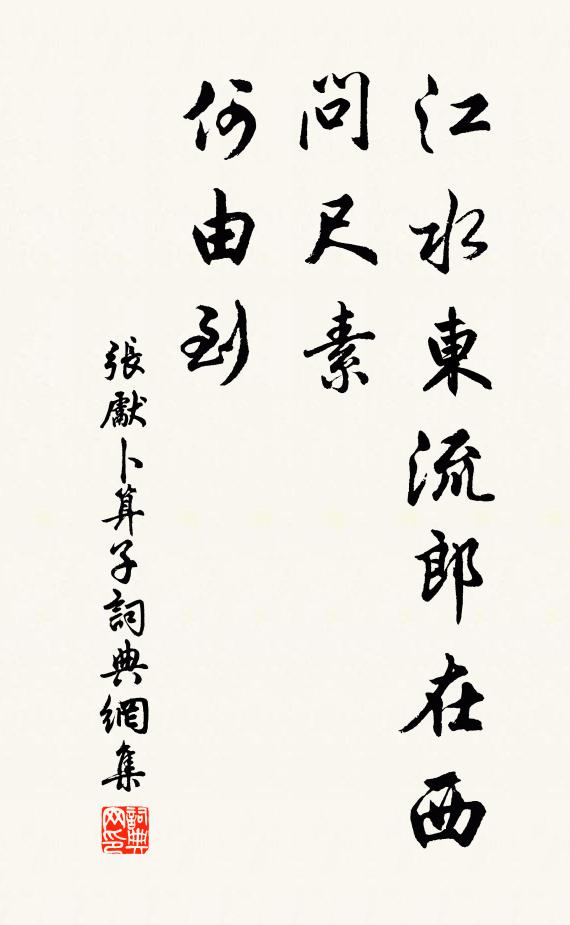 江水東流郎在西
問尺素
何由到
張獻卜算子詞典網集
詞典
网印